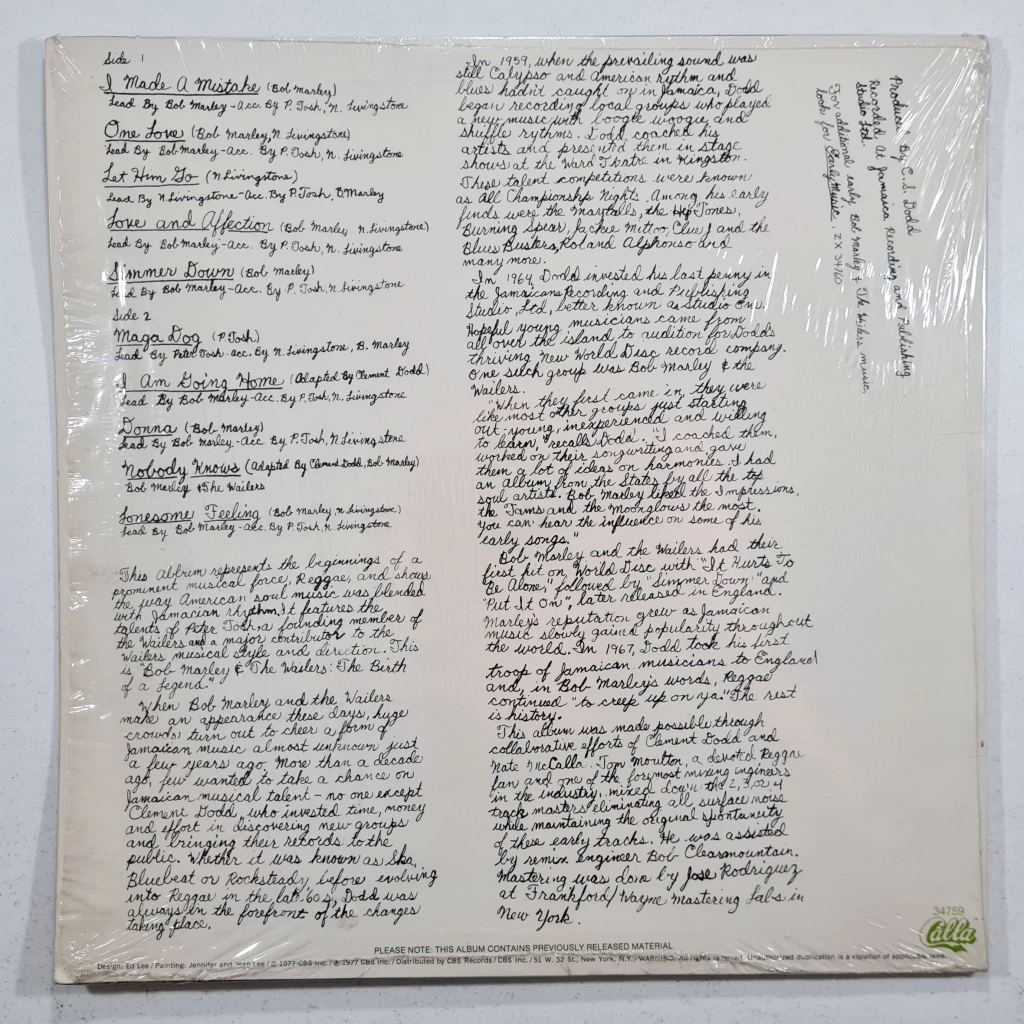 Side 1
I Made A Mistake (Bob Marley)
Lead By Bob Marley-Acc. By P. Tosh, N. Livingstone
One Love (Bob Marley, N. Livingstone)
Lead By Bob Marley-Acc. By P. Tosh, N. Livingstone
Let Him Go (N. Livingstone)
Lead By N. Livingstone-Acc. By P. Tosh, B. Marley
Love and Affection (Bob Marley N. Livingstone)
Lead By Bob Marley-Acc. By P. Tosh, N. Livingstone
Simmer Down (Bob Marley)
Lead By Bob Marley-Acc. By P. Tosh, N. Livingstone
Side 2
Maga Dog (P. Tosh)
Lead By Peter Tosh-acc. By N. Livingstone, B. Marley
I Am Going Home (Adapted By Clement Dodd)
Lead By Bob Marley-Acc. By P. Tosh, N. Livingstone
Donna (Bob Marley)
Lead By Bob Marley-Acc By P. Tosh, N. Livingstone
Nobody Knows (Adapted By Clement Dodd, Bob Marley)
Bob Marley & The Wailers
Lonesome Feeling (Bob Marley, N. Livingstone)
Lead By Bob Marley-Acc. By P. Tosh, N. Livingstone
This Album represents the beginnings of a
prominent musical force, Reggae, and shows
the way American soul music was blended
with Jamacian rhythm. It features the
talents of Peter Tosh, a founding member of
the Wailers and a major contributor to the
Wailers musical style and direction. This
is "Bob Marley & The Wailers: The Birth
of a Legend."
When Bob Marley and the Wailers
make an appearance these days, huge
crowds turn out to cheer a form of
Jamaican music almost unknown just
a few years ago. More than a decade
ago, few wanted to take a chance on
Jamaican musical talent - no one except
Clement Dodd, who invested time, money
and effort in discovering new groups
and bringing their records to the
public. Whether it was known as Ska,
Bluebeat or Rocksteady before evolving
into Reggae in the late 60's, Dodd was
always in the forefront of the changes
taking place.
In 1959, when the prevailing sound was
still Calypso and American rythm and
blues hadn't caught on in Jamaica, Dodd
began recording local groups who played
a new music with boogie woogie and
shuffle rythms. Dodd coached his
artists and presented them in stage
shows at the Ward Theatre in Kingston.
These talent competitions were known
as All Championship Nights. Among his early
finds were the Maytalls, the HepTones,
Burning Spear, Jackie Mittoo, Clue J and the
Blues Busters, Roland Alphonso and
many more.
In 1964, Dodd invested his last penny in
the Jamaican Recording and Publishing
Studio, Ltd, better known as Studio One.
Hopeful young musicians came from
all over the island to audition for Dodds
thriving New World Disc record company.
One such group was Bob Marley & the
Wailers.
"When they first came in, they were
like most other groups just starting
out-young, inexperienced and willing
to learn," recalls Dodd. "I coached them,
worked on their songwriting and gave
them a lot of ideas on harmonies. I had
an album from the States by all the top
soul artists. Bob Marley liked the Impressions,
the Tams and the Moonglows the most.
You can hear the influence on some of his
early songs."
Bob Marley and the Wailers had their
first hit on World Disc with "It Hurts To
Be Alone," followed by "Simmer Down" and
"Put It On", later released in England.
Marley's reputation grew as Jamaican
music slowly gained popularity throughout
the world. In 1967, Dodd took his first
troop of Jamaican musicians to England
and, in Bob Marley's words, Reggae
continued "to creep up on ya." The rest
is history.
This album was made possible through
collaborative efforts of Clement Dodd and
Nate McCalla. Tom Moulton, a devoted Reggae
fan and one of the foremost mixing engineers
in the industry, mixed down the 2, 3, or 4
track masters eliminating all surface noise
while maintaining the original spontaneity
of these early tracks. He was assisted
by remix engineer Bob Clearmountain.
Mastering was done by José Rodriguez
at Frankford/Wayne Mastering Labs in
New York.
Produced By C.S. Dodd
Recorded At Jamaica Recording and Publishing
Studio Ltd.
For additional early Bob Marley & The Wailers music,
look for Early Music, ZX 34760
34759
Calla
PLEASE NOTE: THIS ALBUM CONTAINS PREVIOUSLY RELEASED MATERIAL
Design: Ed Lee / Painting: Jennifer and Jean Lee / © 1977 CBS Inc. / ℗ 1977 CBS Inc. / Distributed by CBS Records / CBS Inc. / 51 W. 52 St., New York, N.Y. / WARNING: All rights reserved. Unauthorized duplication is a violation of applicable laws.